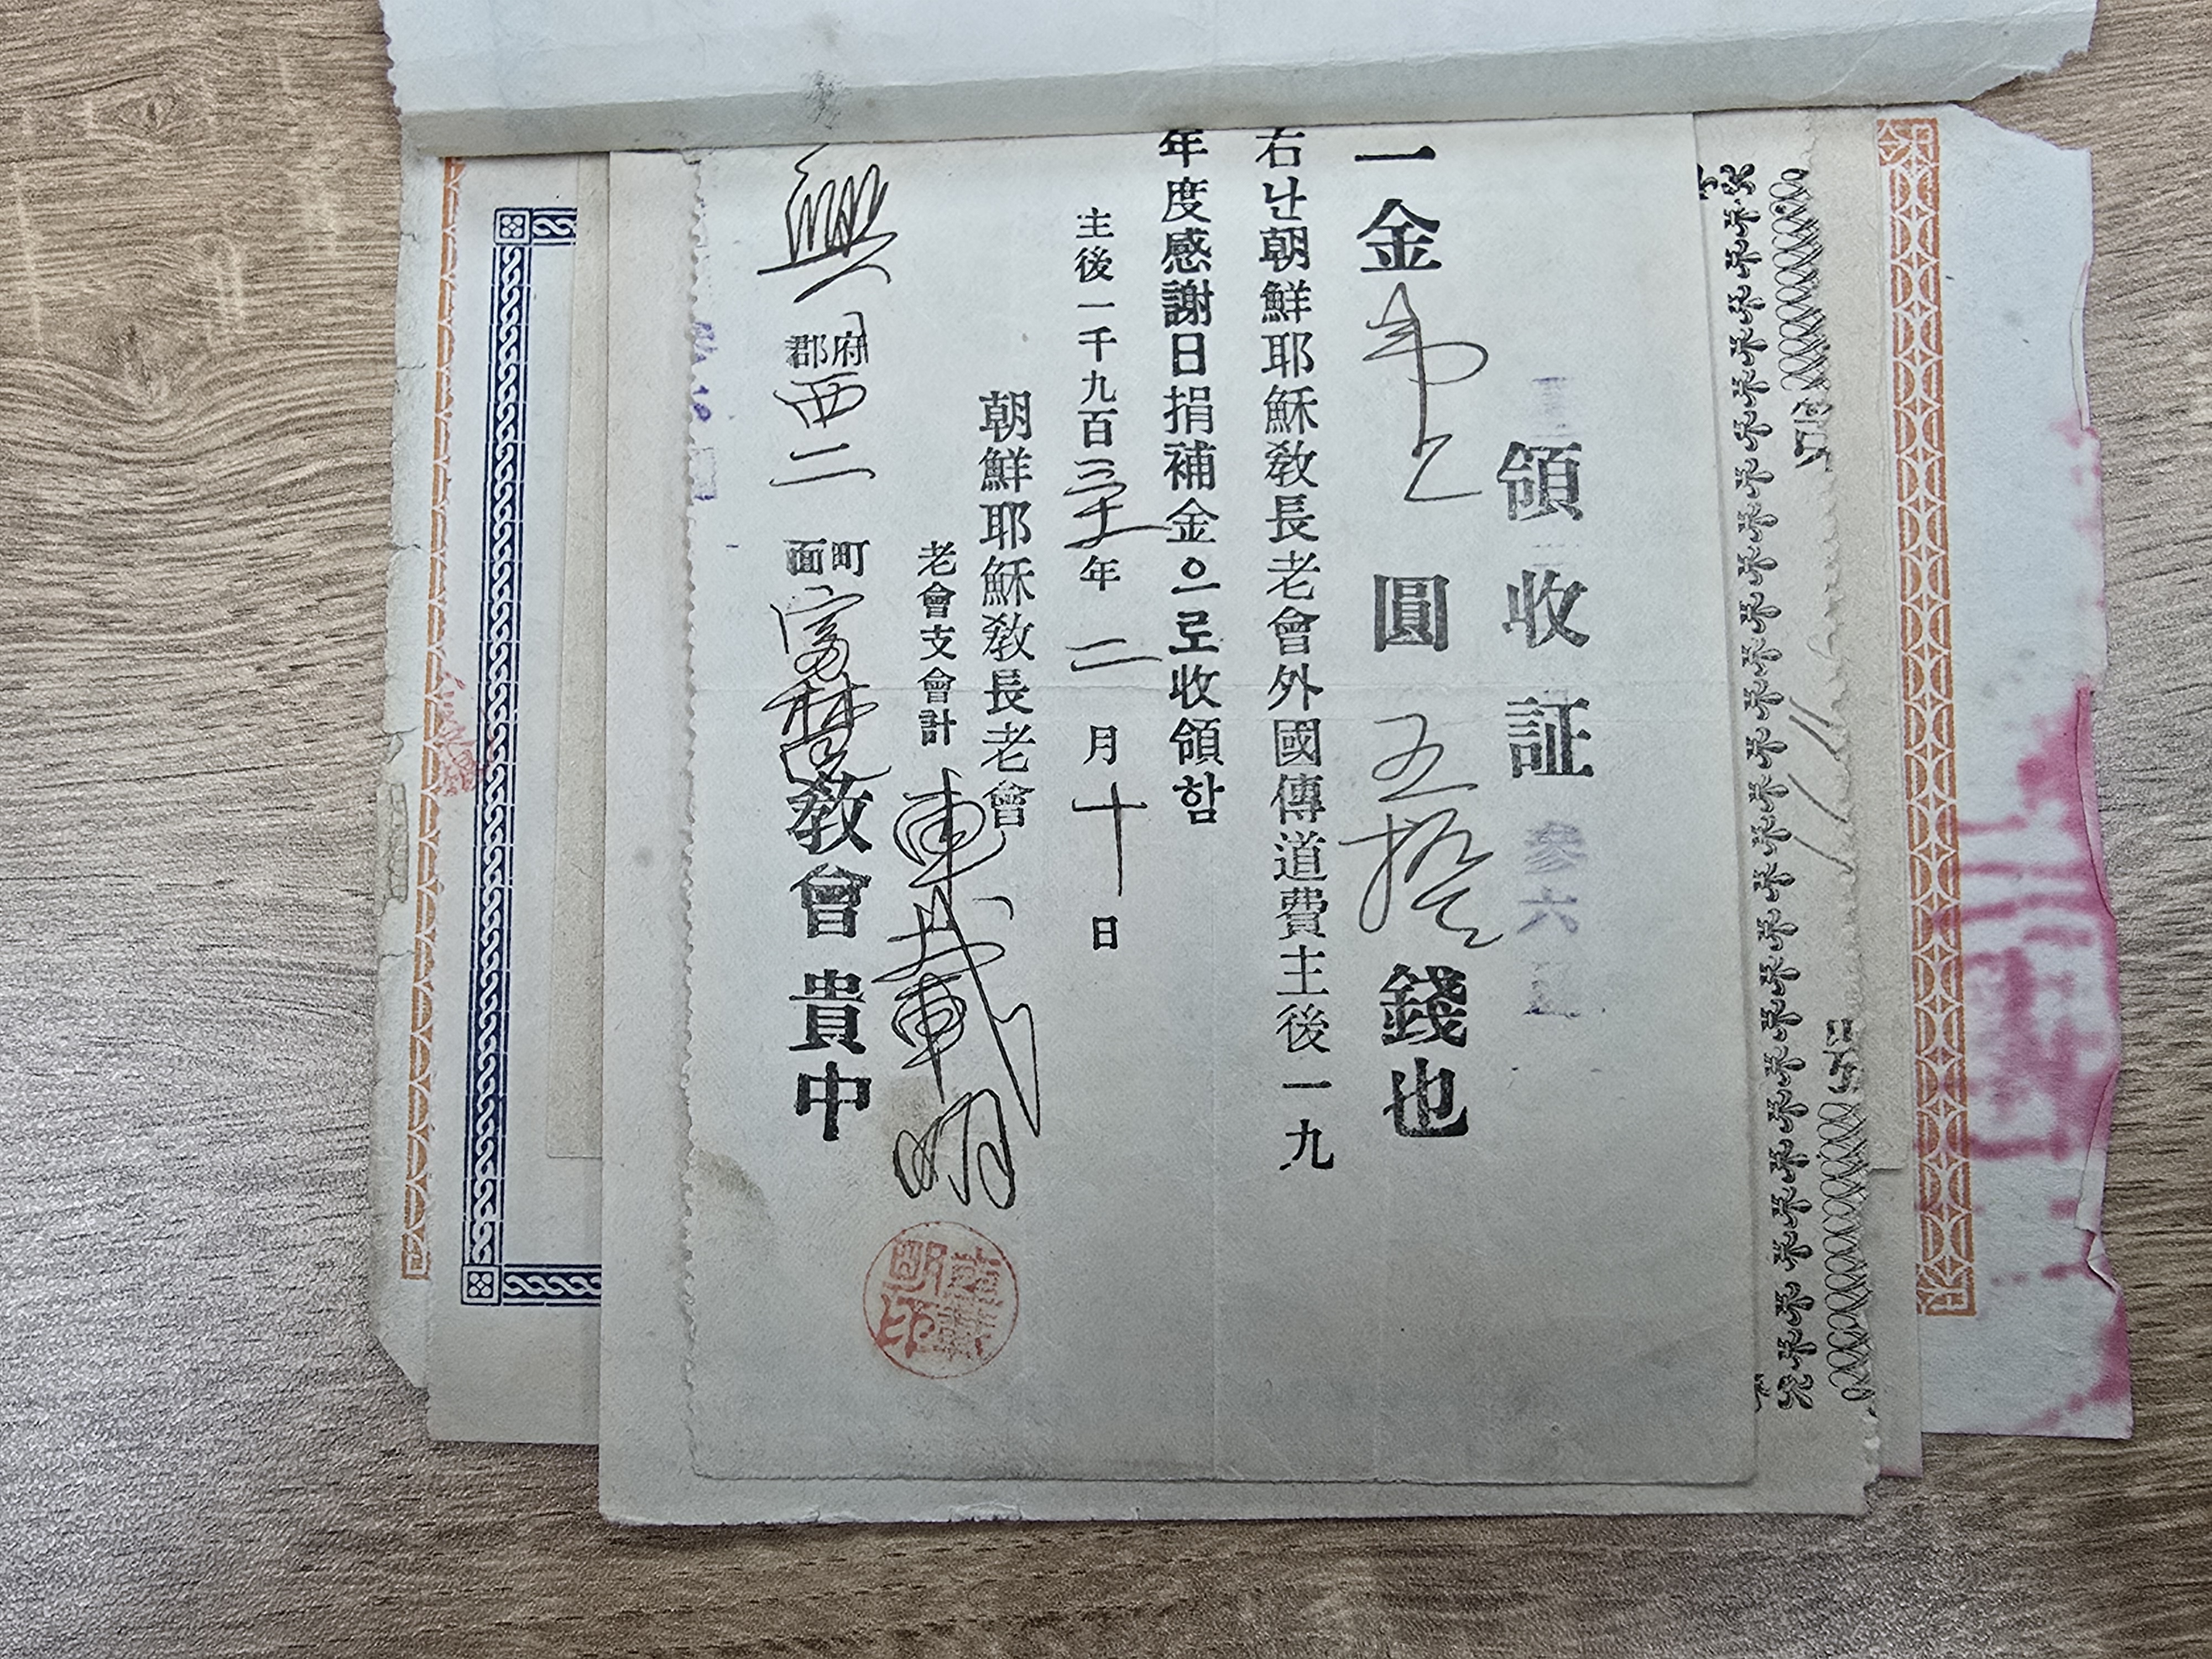 領收証
參六
一金 圓 五拾 錢也
右난朝鮮耶穌敎長老會外國傳道費主後一九
年度感謝日捐補金으로收領함
主後一千九百三十 年 二 月 十 日
朝鮮耶穌敎長老會
老會支會計 車載明
府郡 西二 町面 富 敎會貴中
車載明印